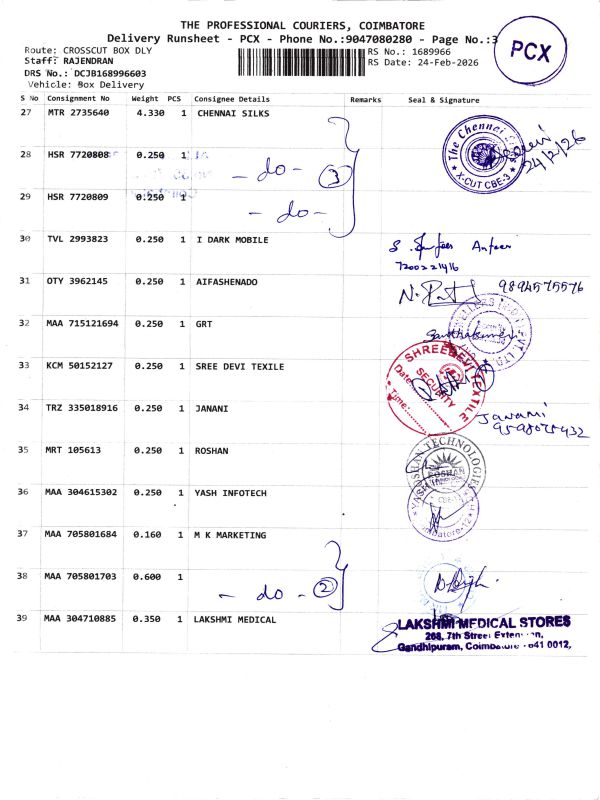 THE PROFESSIONAL COURIERS, COIMBATORE
Delivery Runsheet - PCX - Phone No.:9047080280 - Page No.:3
PCX
Route: CROSSCUT BOX DLY
RS No.: 1689966
Staff: RAJENDRAN
RS Date: 24-Feb-2026
DRS No.: DCJB168996603
Vehicle: Box Delivery
S No Consignment No Weight PCS Consignee Details Remarks Seal & Signature
27 MTR 2735640 4.330 1 CHENNAI SILKS
The Chennai
X-CUT CBE-3
24/2/26
28 HSR 7720808 0.250 1 - do - 3
29 HSR 7720809 0.250 1 - do -
30 TVL 2993823 0.250 1 I DARK MOBILE
31 OTY 3962145 0.250 1 AIFASHENADO
9894575576
32 MAA 715121694 0.250 1 GRT
33 KCM 50152127 0.250 1 SREE DEVI TEXILE
SHREEDEVI TEXTILE
Date:
SECURITY
Time:
34 TRZ 335018916 0.250 1 JANANI
Janani
35 MRT 105613 0.250 1 ROSHAN
ROSHAN TECHNOLOGIES
ROSHAN
36 MAA 304615302 0.250 1 YASH INFOTECH
37 MAA 705801684 0.160 1 M K MARKETING
38 MAA 705801703 0.600 1 - do - 2
39 MAA 304710885 0.350 1 LAKSHMI MEDICAL
LAKSHMI MEDICAL STORES
268, 7th Street
Gandhipuram, 641 0012,